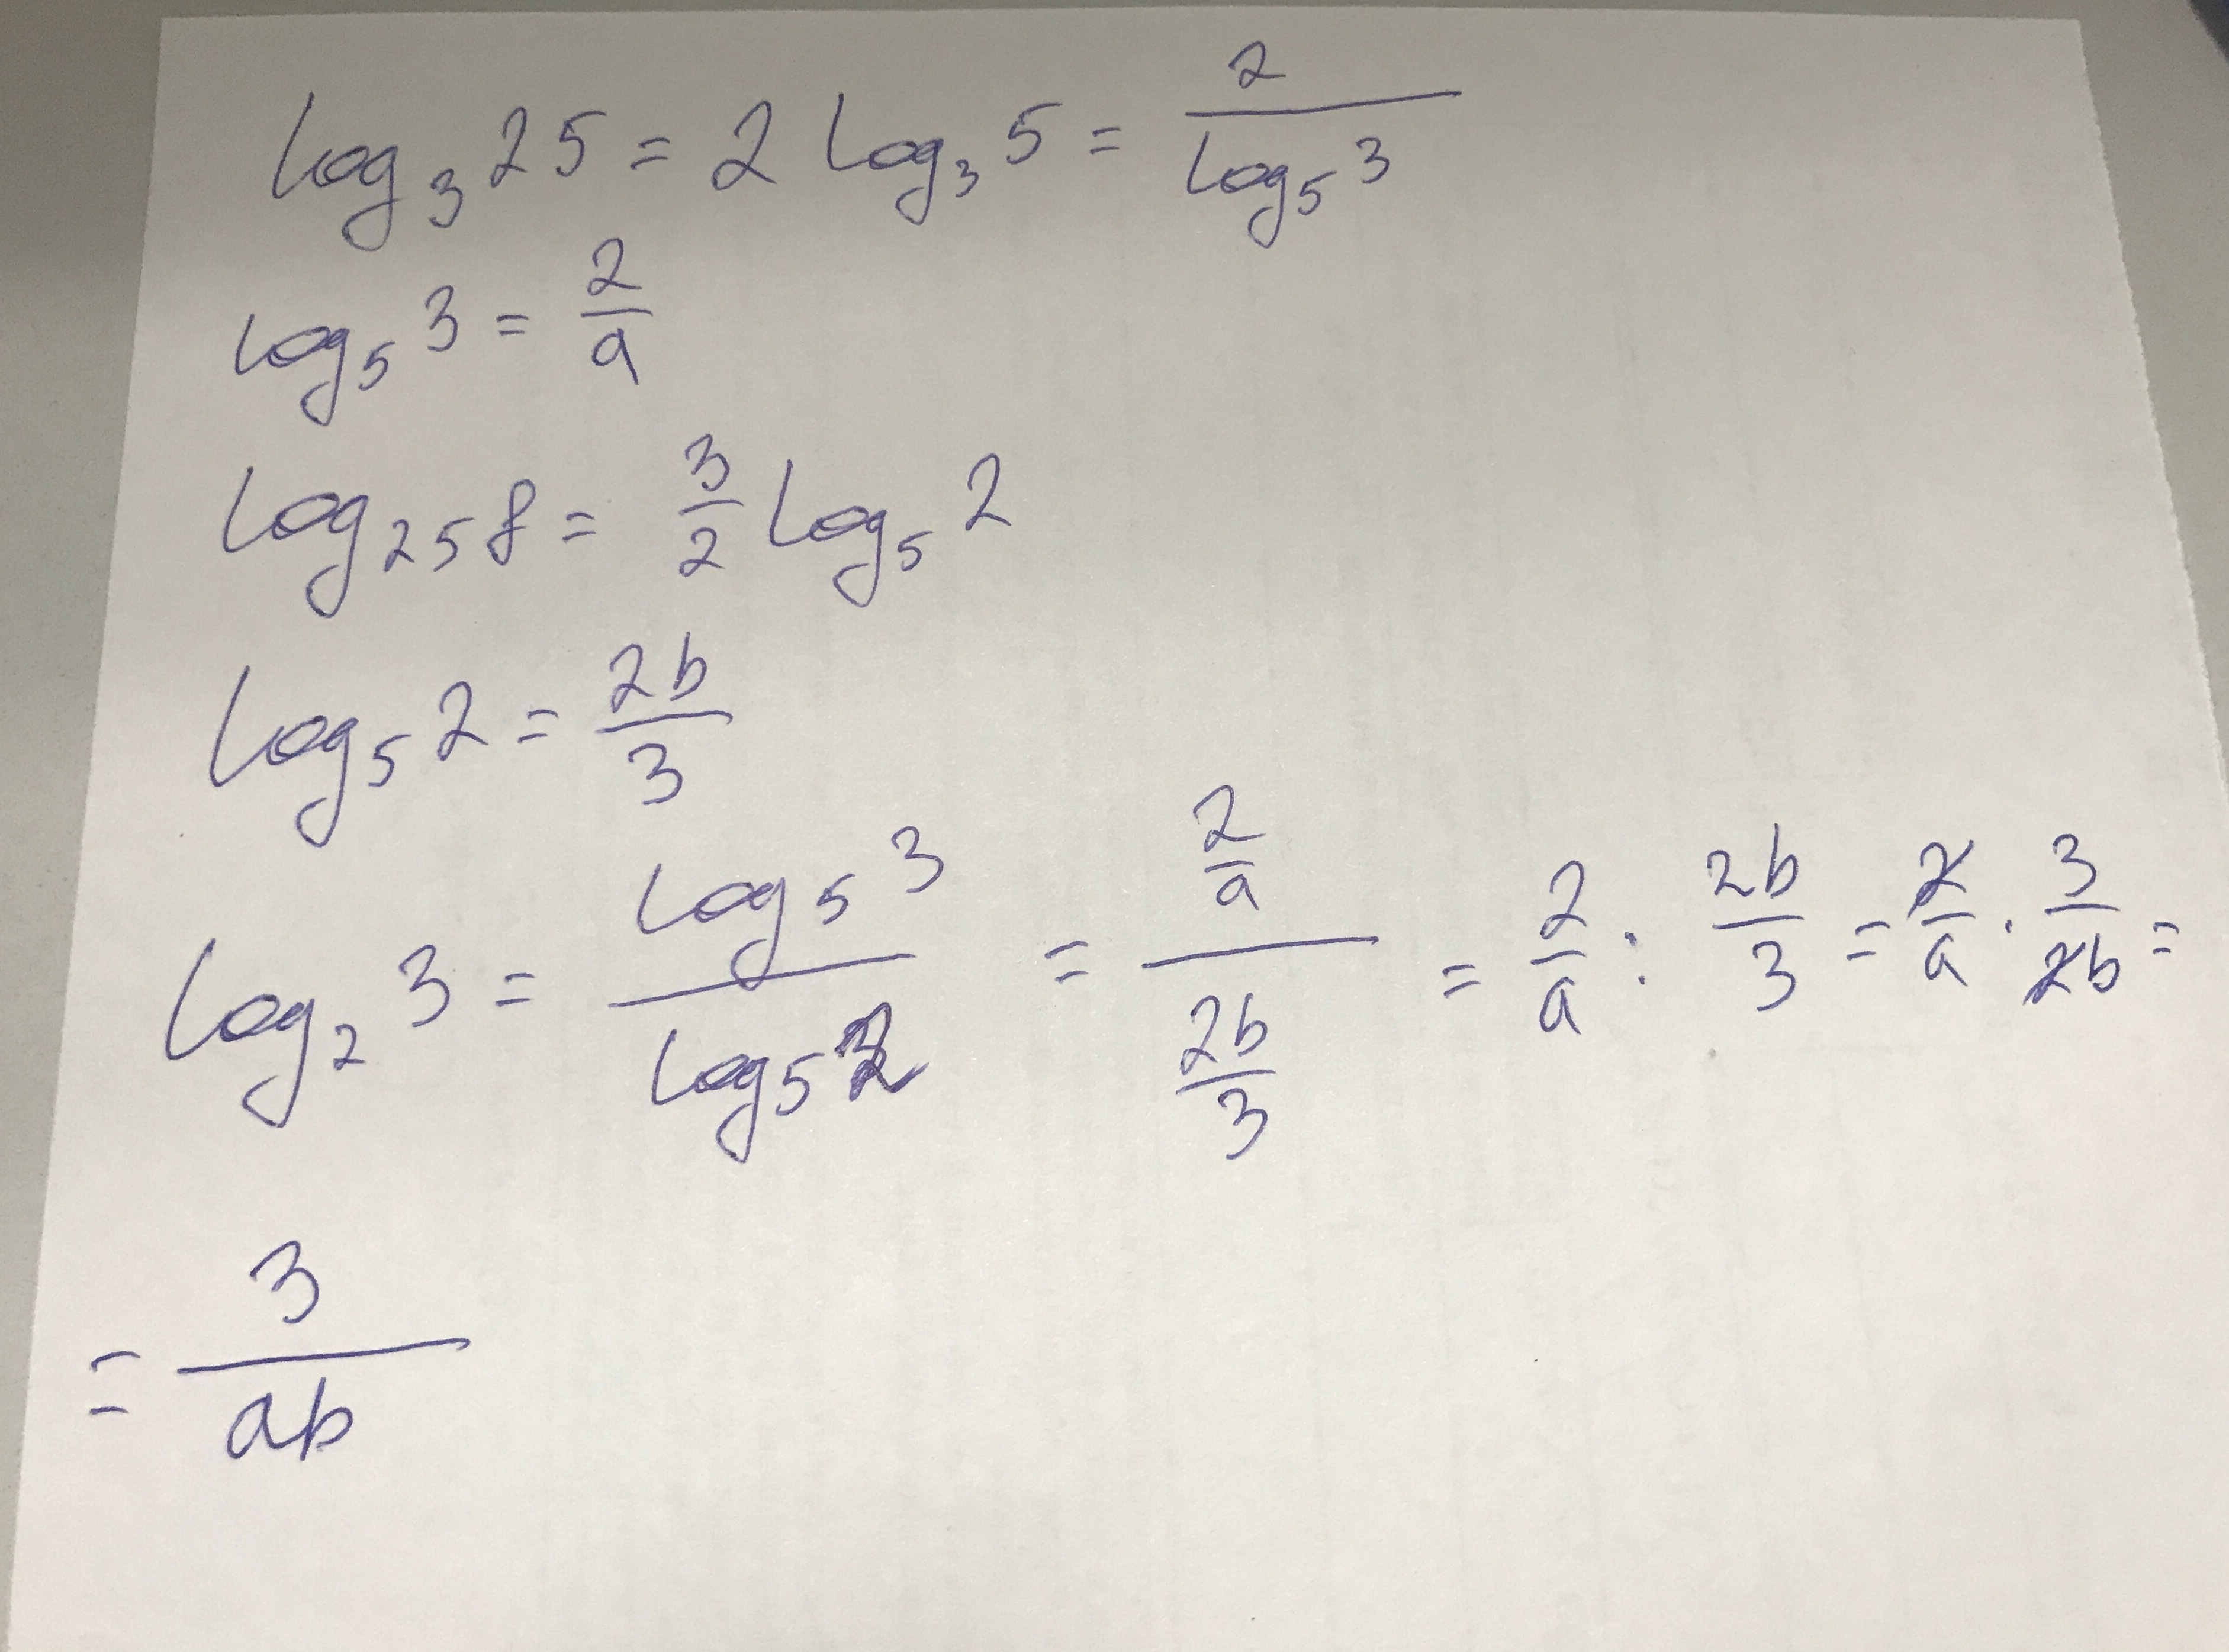 log₃ 25 = 2 log₃ 5 = 2/(log₅ 3)
log₅ 3 = 2/a
log₂₅ 8 = 3/2 log₅ 2
log₅ 2 = 2b/3
log₂ 3 = (log₅ 3)/(log₅ 2) = (2/a)/(2b/3) = 2/a : 2b/3 = 2/a · 3/2b =
= 3/ab